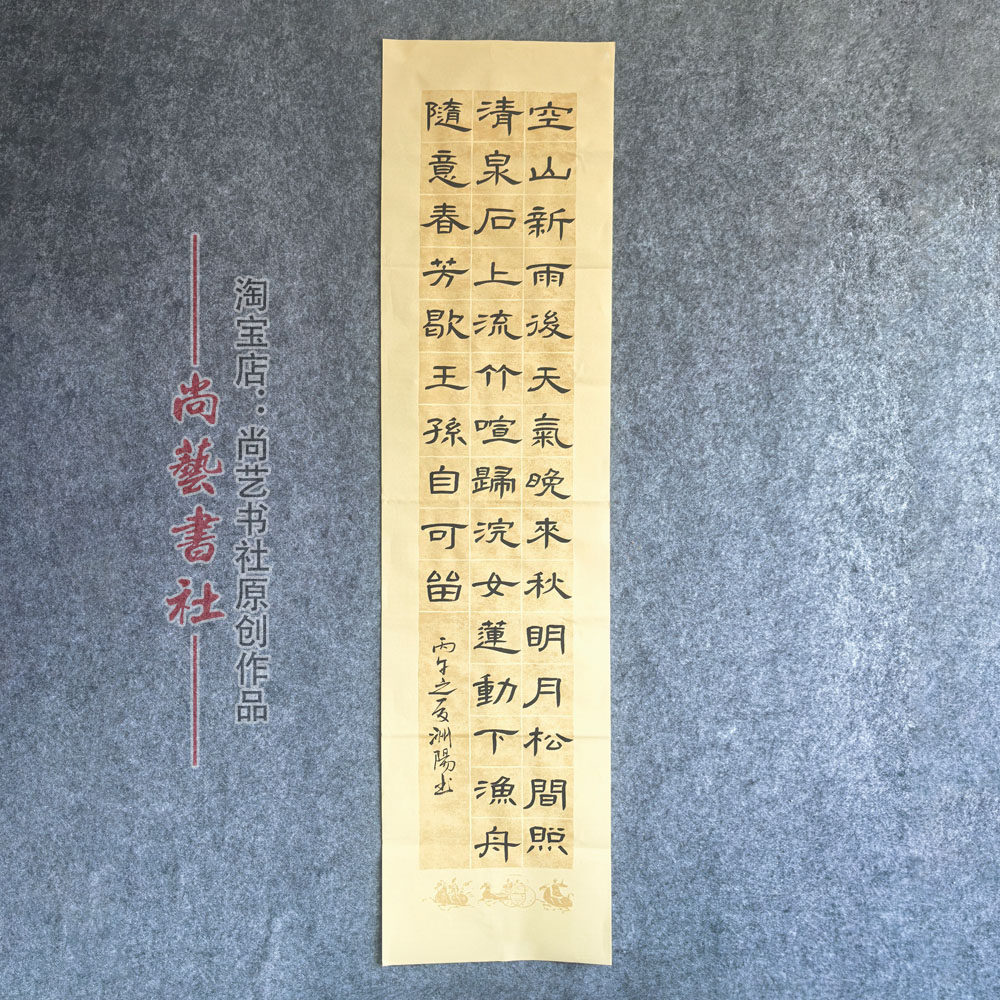 空山新雨後天氣晚來秋明月松間照
清泉石上流竹喧歸浣女蓮動下漁舟
隨意春芳歇王孫自可畱
丙午之夏洲陽书
淘宝店：尚艺书社原创作品
尚藝書社